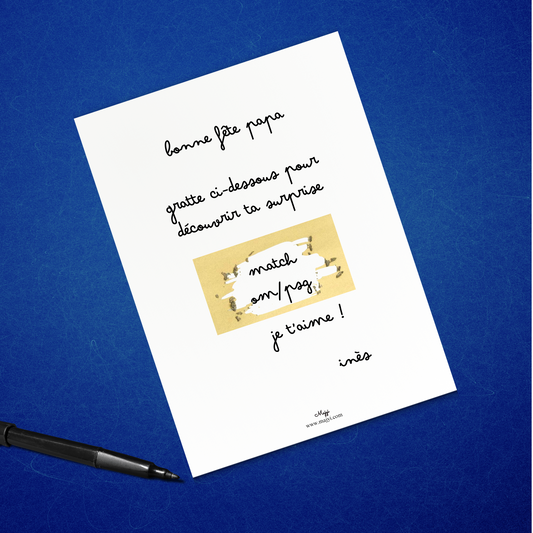 bonne fête papa
gratte ci-dessous pour
découvrir ta surprise
match
om/psg
je t'aime !
inès
www.majyi.com